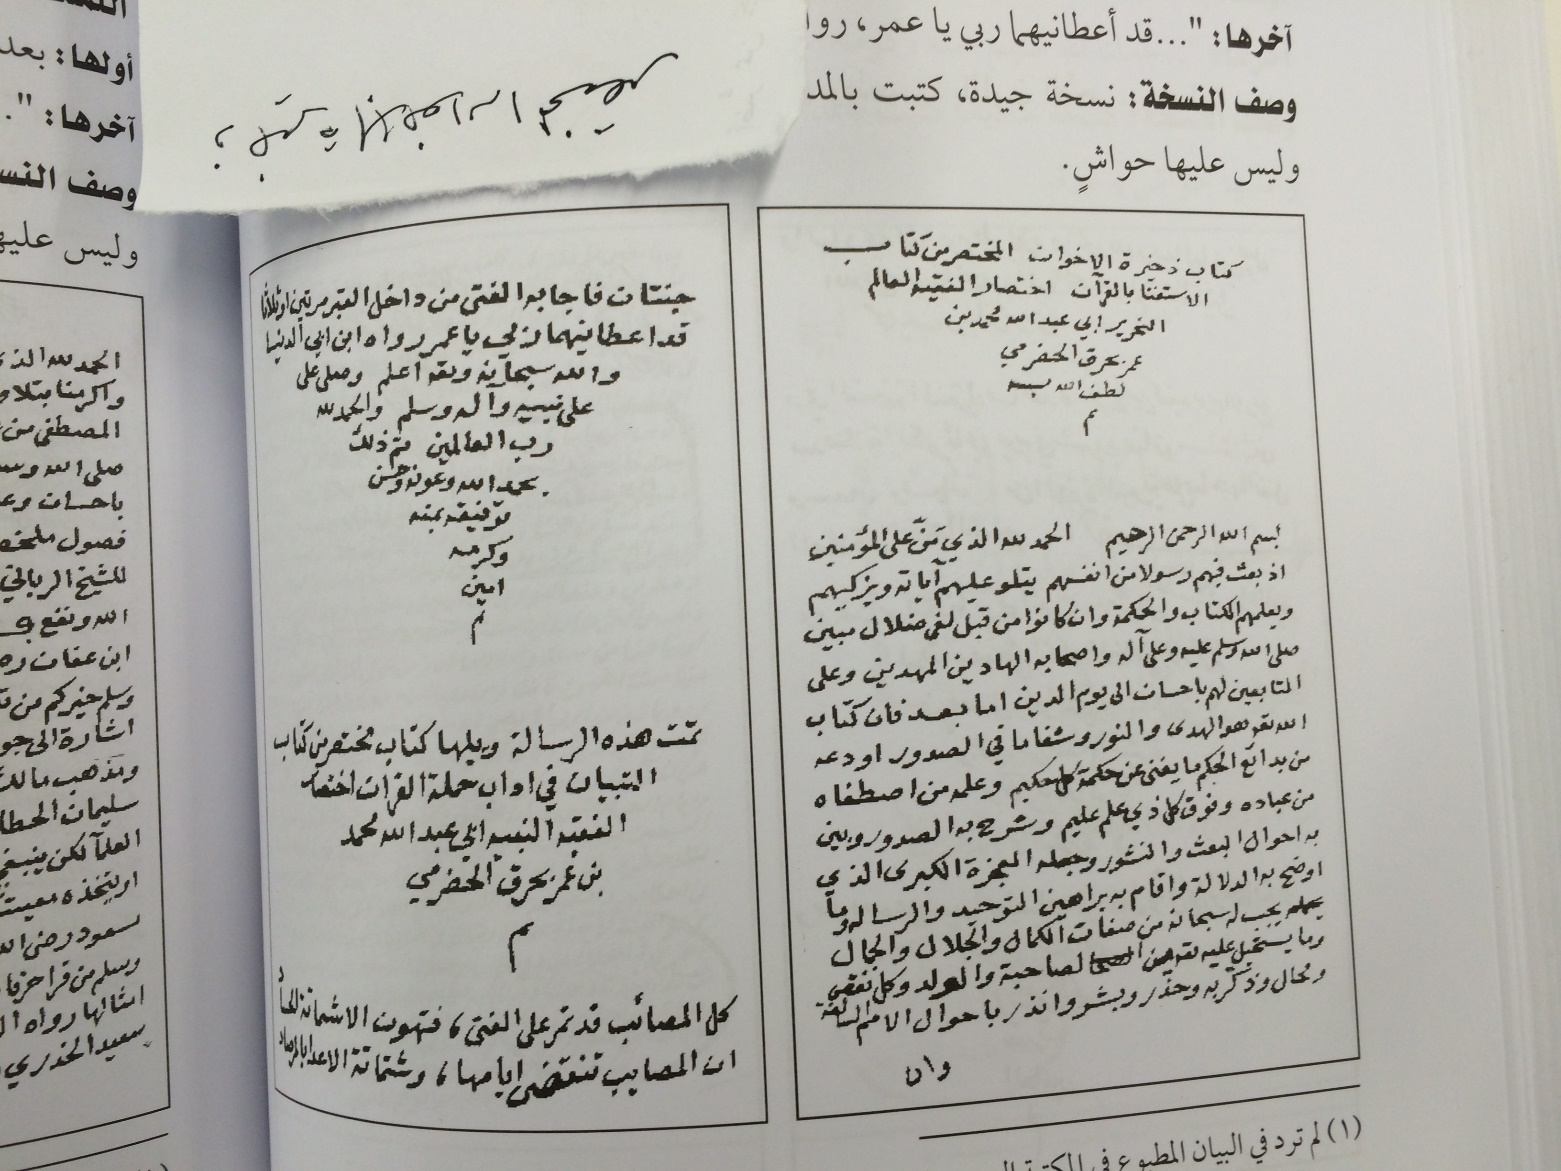 آخرها: "...قد أعطانيهما ربي يا عمر، روا
وصف النسخة: نسخة جيدة، كتبت بالمد
وليس عليها حواشٍ.
كتاب ذخيرة الاخوان المختصر من كتاب
الاستغنا بالقرآن اختصار الفقيه العالم
النحرير ابي عبد الله محمد بن
عمر بحرق الحضرمي
لطف الله به
م
بسم الله الرحمن الرحيم الحمد لله الذي منّ على المؤمنين
اذ بعث فيهم رسولا من انفسهم يتلو عليهم آياته ويزكيهم
ويعلمهم الكتاب والحكمة وان كانوا من قبل لفي ضلال مبين
صلى الله وسلم عليه وعلى آله واصحابه الهادين المهديين وعلى
التابعين لهم باحسان الى يوم الدين اما بعد فان كتاب
الله تعه هو الهدى والنور وشفاء ما في الصدور اودعه
من بدائع الحكم ما يغني عن حكمة كل حكيم وعلمه من اصطفاه
من عباده وفوق كل ذي علم عليم وشرح به الصدور وبين
به احوال البعث والنشور وجعله المعجزة الكبرى الذي
اوضح به الدلالة واقام به براهين التوحيد والرسالة وما
يجب له سبحانه من صفات الكمال والجلال والجمال
وما يستحيل عليه تعه من الصاحبة والولد وكل نقص
ومحال وذكر به وحذر وبشر وانذر باحوال الامم السالفة
وان
(١) لم ترد في البيان المطبوع في
جنتان فاجابه الفتى من داخل القبر مرتين او ثلاثا
قد اعطانيهما ربي يا عمر رواه ابن ابي الدنيا
والله سبحانه وتعه اعلم وصلى على
على نبيه وآله وسلم والحمد لله
رب العالمين تم ذلك
بحمد الله وعونه وحسن
توفيقه بمنه
وكرمه
امين
م
تمت هذه الرسالة ويليها كتاب مختصر من كتاب
التبيان في اداب حملة القران اختصار
الفقيه النبيه ابي عبد الله محمد
بن عمر بحرق الحضرمي
م
كل المصائب قد تمر على الفتى، فتهون الا شماتة الحساد
ان المصايب تنقضي ايامها، وشماتة الاعدا بالمرصاد
أولها: بعد
آخرها: ".
وصف النس
وليس عليه
الحمد لله الذي
واكرمنا بتلاو
المصطفى من
صلى الله وسـ
باحسان وعـ
فصول ملخصـ
للشيخ الرباني
الله ونفع به
ابن عفان رضـ
وسلم خيركم من تـ
اشارة الى جو
ومذهب مالك
سليمان الخطا
العلماء لكن ينبغي
او يتخذه معيشـ
مسعود رضى الله
وسلم من قرا حرفا
امثالها رواه الـ
سعيد الخدري